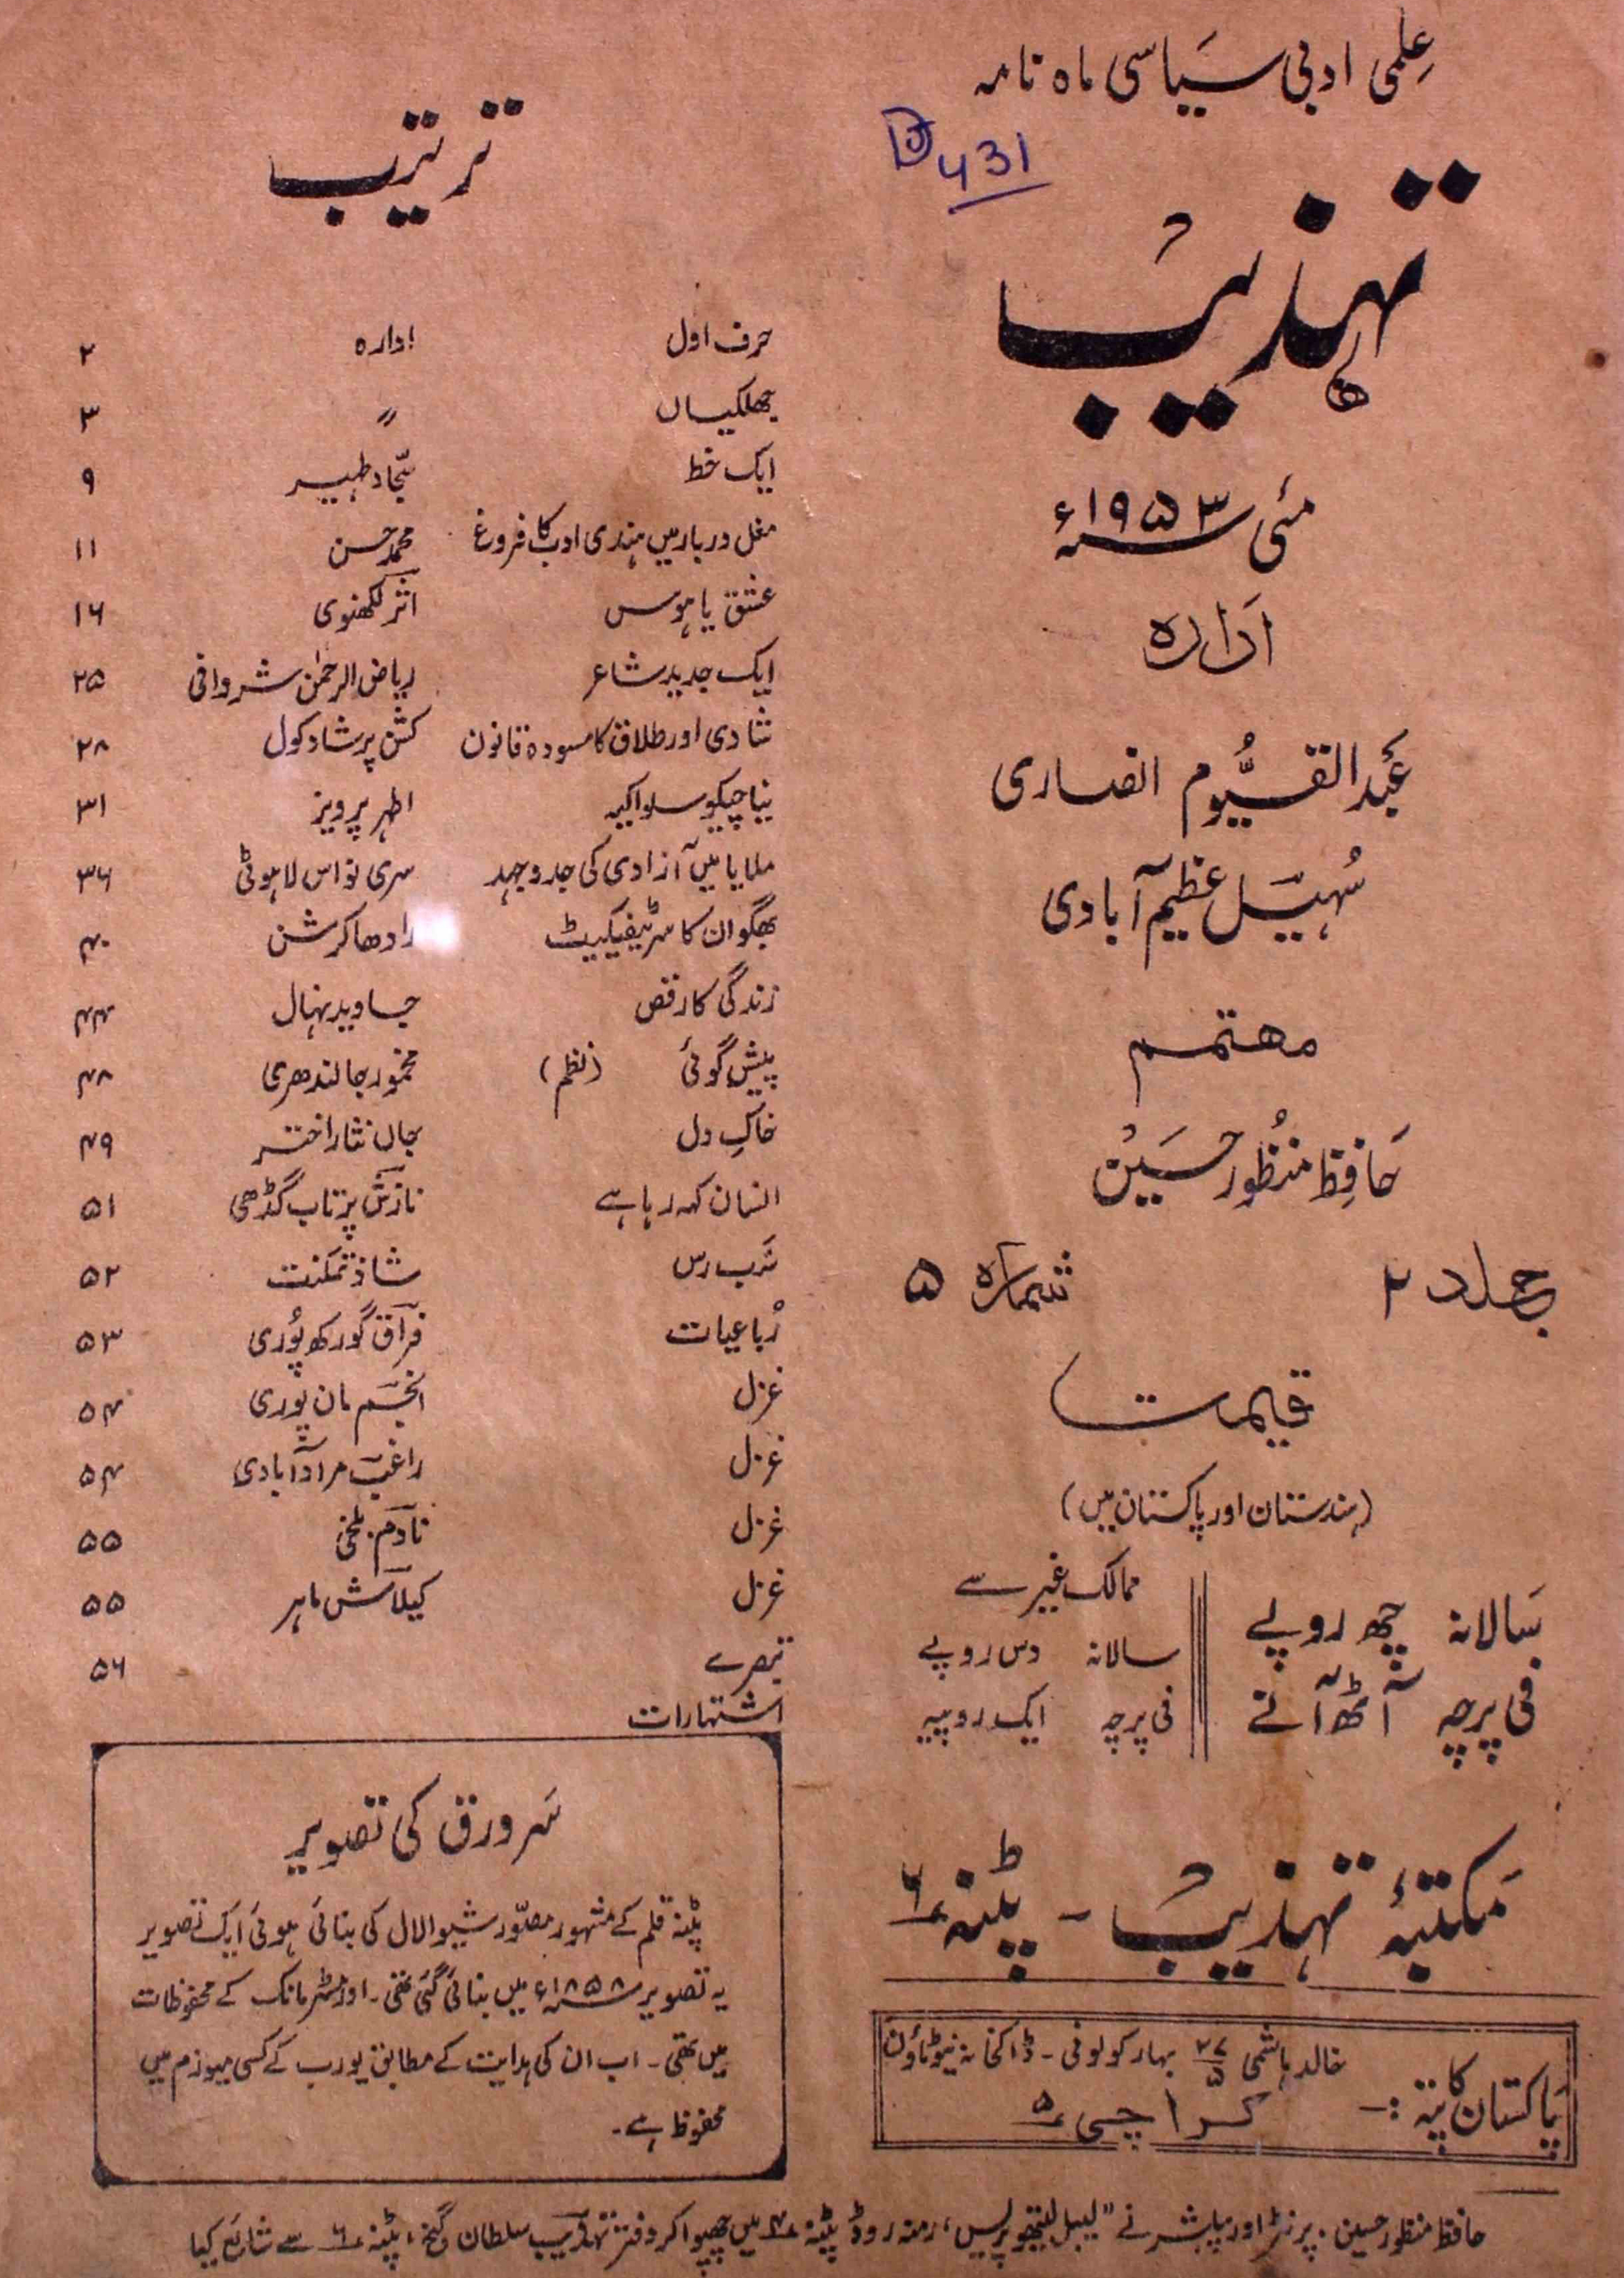 علمی ادبی سیاسی ماہ نامہ
431
تہذیب
مئی ۱۹۵۳ء
ادارہ
عبد القیوم انصاری
سہیل عظیم آبادی
مہتمم
حافظ منظور حسین
جلد ۲ شمارہ ۵
قیمت
(ہندستان اور پاکستان میں)
سالانہ چھ روپے
فی پرچہ آٹھ آنے
ممالک غیر سے
سالانہ دس روپے
فی پرچہ ایک روپیہ
مکتبۂ تہذیب - پٹنہ ۶
پاکستان کا پتہ :- خالد ہاشمی ۲۷/۵ بہار کولونی - ڈاکخانہ نیو ٹاؤن
کراچی ۵
ترتیب
حرف اول ادارہ ۲
جھلکیاں 〃 ۳
ایک خط سجّاد ظہیر ۹
مغل دربار میں ہندی ادب کا فروغ محمد حسن ۱۱
عشق یا ہوس اثر لکھنوی ۱۶
ایک جدید شاعر ریاض الرحمٰن شروانی ۲۵
شادی اور طلاق کا مسودہ قانون کشن پرشاد کول ۲۸
نیا چیکو سلواکیہ اطہر پرویز ۳۱
ملایا میں آزادی کی جدوجہد سری نواس لاہوٹی ۳۶
بھگوان کا سرٹیفیکیٹ رادھا کرشن ۴۰
زندگی کا رقص جاوید نہال ۴۴
پیش گوئی (نظم) مخمور جالندھری ۴۸
خاکِ دل جاں نثار اختر ۴۹
انسان کہہ رہا ہے نازش پرتاب گڈھی ۵۱
سَب رس شاذ تمکنت ۵۲
رُباعیات فراق گورکھ پُوری ۵۳
غزل انجم مان پوری ۵۴
غزل راغب مراد آبادی ۵۴
غزل نادم بلخی ۵۵
غزل کیلاش ماہر ۵۵
تبصرے ۵۶
اشتہارات
سَر ورق کی تصویر
پٹنہ قلم کے مشہور مصوّر شیوا لال کی بنائی ہوئی ایک تصویر
یہ تصویر ۱۸۵۸ء میں بنائی گئی تھی۔ اور مسٹر مانک کے محفوظات
میں تھی۔ اب ان کی ہدایت کے مطابق یورپ کے کسی میوزم میں
محفوظ ہے۔
حافظ منظور حسین۔ پرنٹر اور پبلشر نے "لیبل لیتھو پریس، رمنہ روڈ پٹنہ ۴ میں چھپوا کر دفتر تہذیب سلطان گنج، پٹنہ ۶ سے شائع کیا